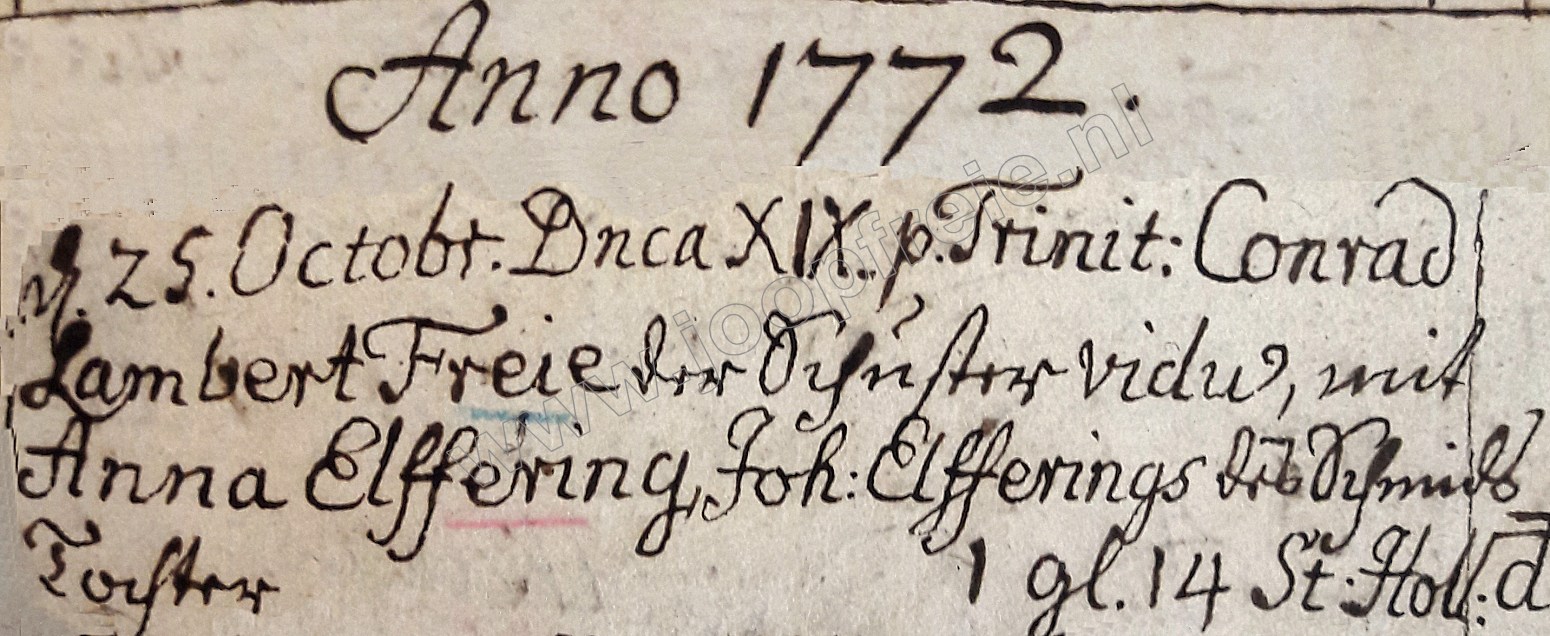 Anno 1772.
d. 25. Octobr. Dnca XIX. p. Trinit: Conrad
Lambert Freie der Schuster viduus, mit
Anna Elffering, Joh: Elfferings des Schmids
Tochter 1 gl. 14 St: Holl: d
www.joopfreie.nl